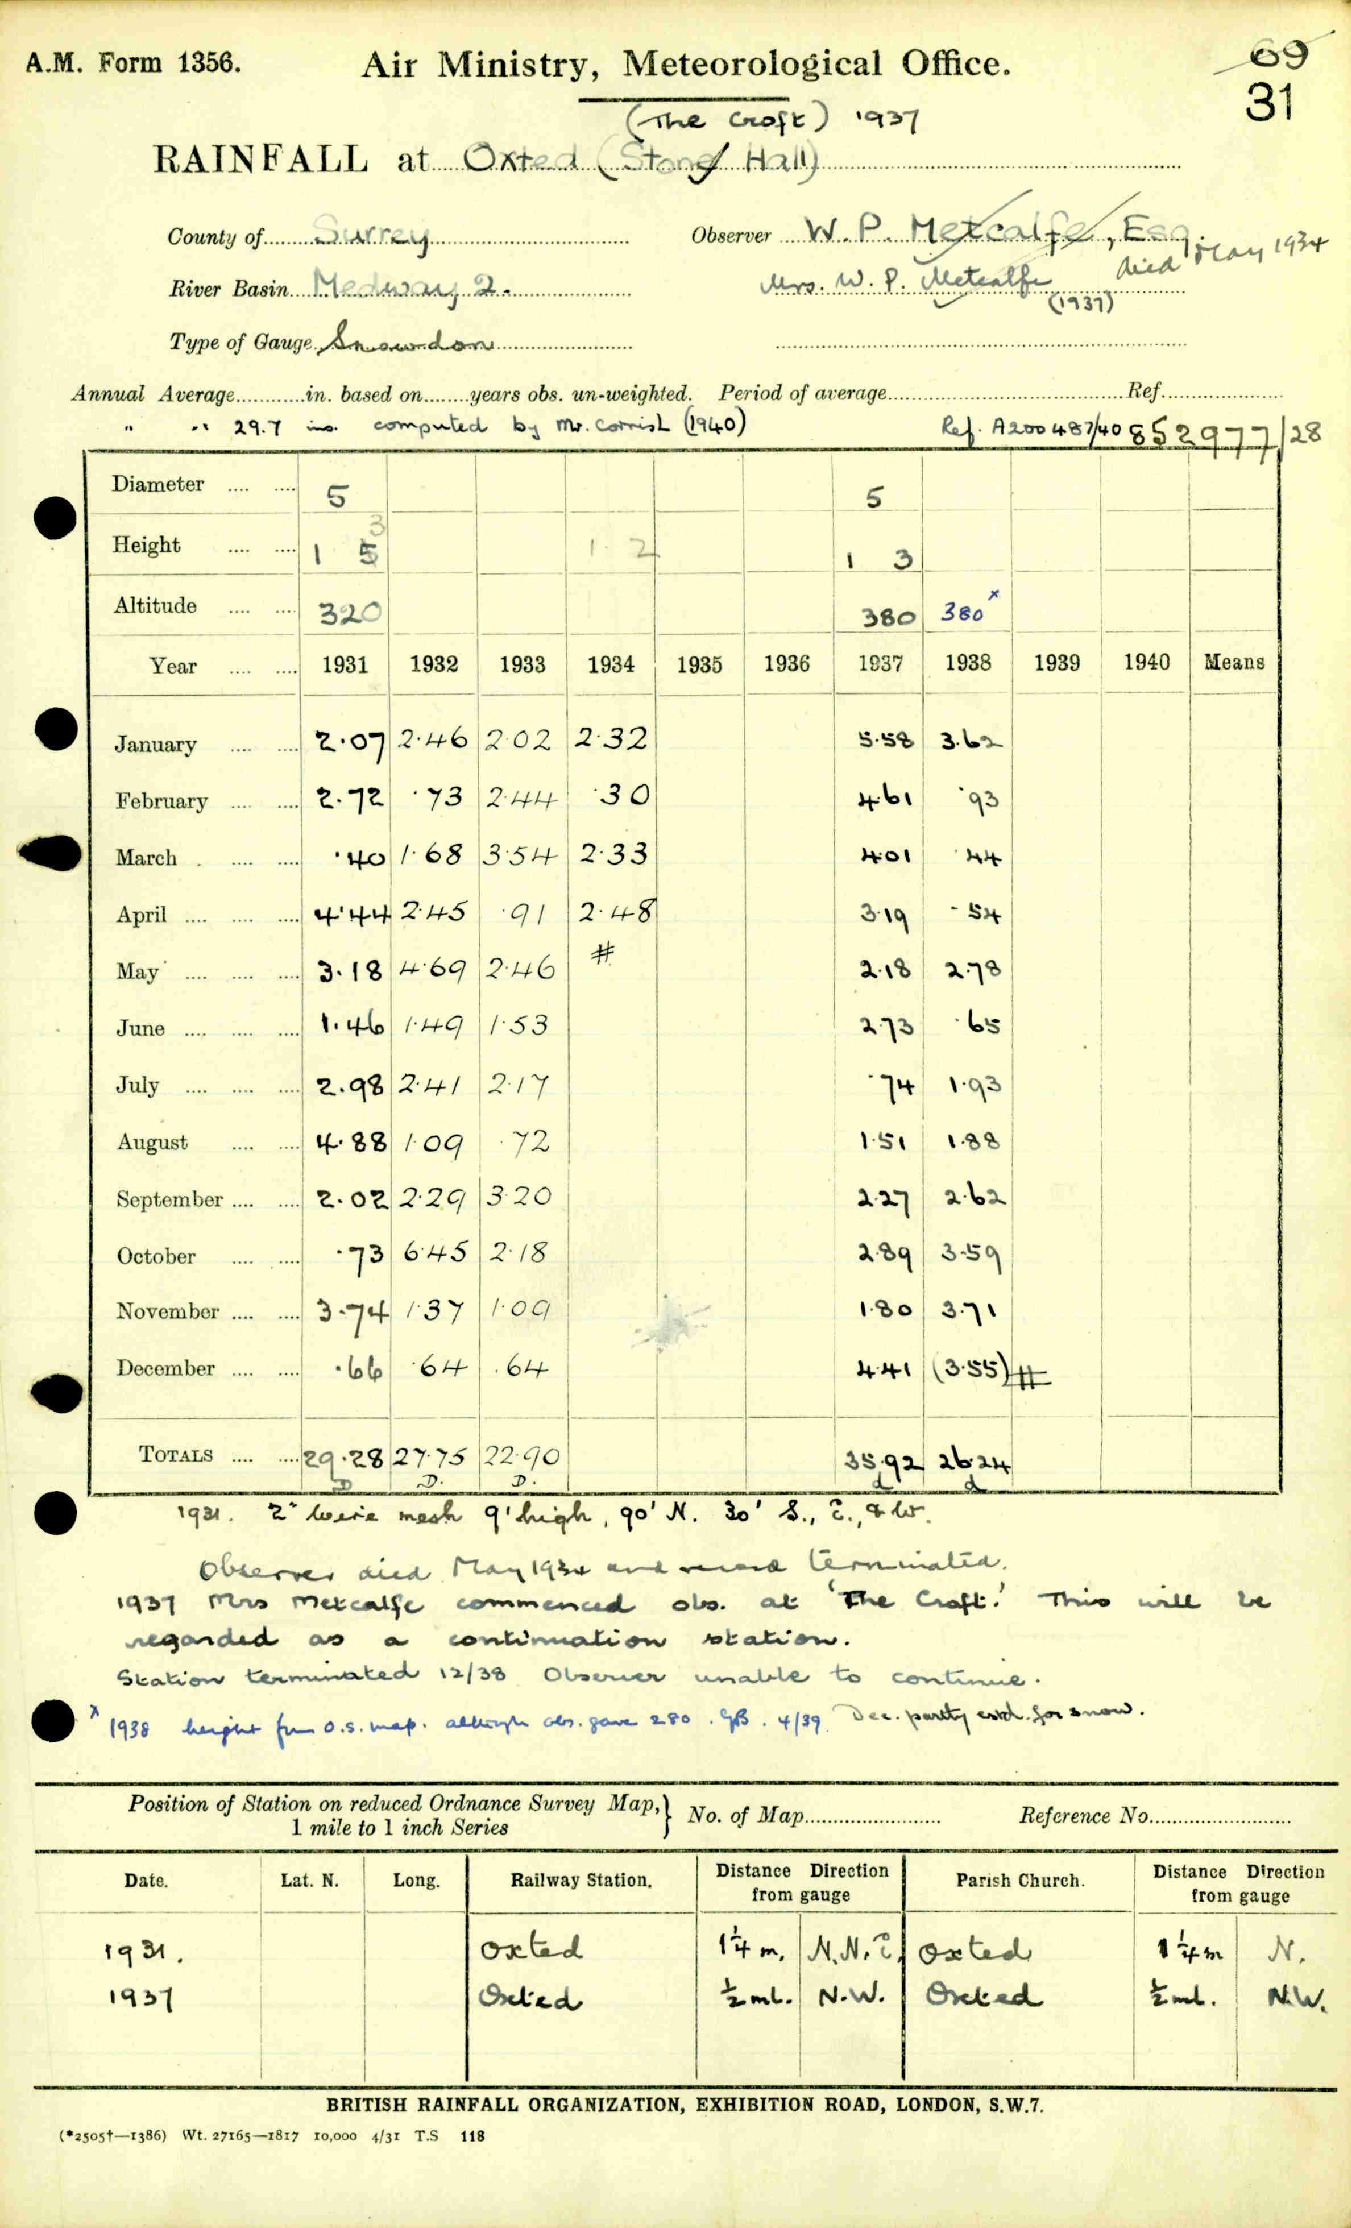 A.M. Form 1356. Air Ministry, Meteorological Office. 69
31
(The Croft) 1937
RAINFALL at Oxted (Stone Hall)
County of Surrey Observer W. P. Metcalfe, Esq. died May 1934
River Basin Medway 2. Mrs. W. P. Metcalfe (1937)
Type of Gauge Snowdon
Annual Average in. based on years obs. un-weighted. Period of average Ref.
" " 29.7 ins. computed by Mr. Cornish (1940) Ref. A200487/40 852977/28
Diameter 5 5
Height 1 5 3 1 2 1 3
Altitude 320 380 380 x
Year 1931 1932 1933 1934 1935 1936 1937 1938 1939 1940 Means
January 2.07 2.46 2.02 2.32 5.58 3.62
February 2.72 .73 2.44 .30 4.61 .93
March .40 1.68 3.54 2.33 4.01 .44
April 4.44 2.45 .91 2.48 3.19 .54
May 3.18 4.69 2.46 # 2.18 2.78
June 1.46 1.49 1.53 2.73 .65
July 2.98 2.41 2.17 .74 1.93
August 4.88 1.09 .72 1.51 1.88
September 2.02 2.29 3.20 2.27 2.62
October .73 6.45 2.18 2.89 3.59
November 3.74 1.37 1.09 1.80 3.71
December .66 .64 .64 4.41 (3.55) #
TOTALS 29.28 27.75 22.90 35.92 26.24
D D. D. d d
1931. 2" wire mesh 9' high, 90' N. 30' S., E., & W.
Observer died May 1934 and record terminated.
1937 Mrs Metcalfe commenced obs. at 'The Croft.' This will be
regarded as a continuation station.
Station terminated 12/38 Observer unable to continue.
x 1938 height from O.S. map. although obs. gave 280. GB. 4/39. Dec. partly estd. for snow.
Position of Station on reduced Ordnance Survey Map, } No. of Map Reference No.
1 mile to 1 inch Series
Date. Lat. N. Long. Railway Station. Distance Direction from gauge Parish Church. Distance Direction from gauge
1931. Oxted 1¼ m. N.N.E. Oxted 1¼ m N.
1937 Oxted ½ ml. N.W. Oxted ½ ml. N.W.
BRITISH RAINFALL ORGANIZATION, EXHIBITION ROAD, LONDON, S.W.7.
(*2505†—1386) Wt. 27165—1817 10,000 4/31 T.S 118